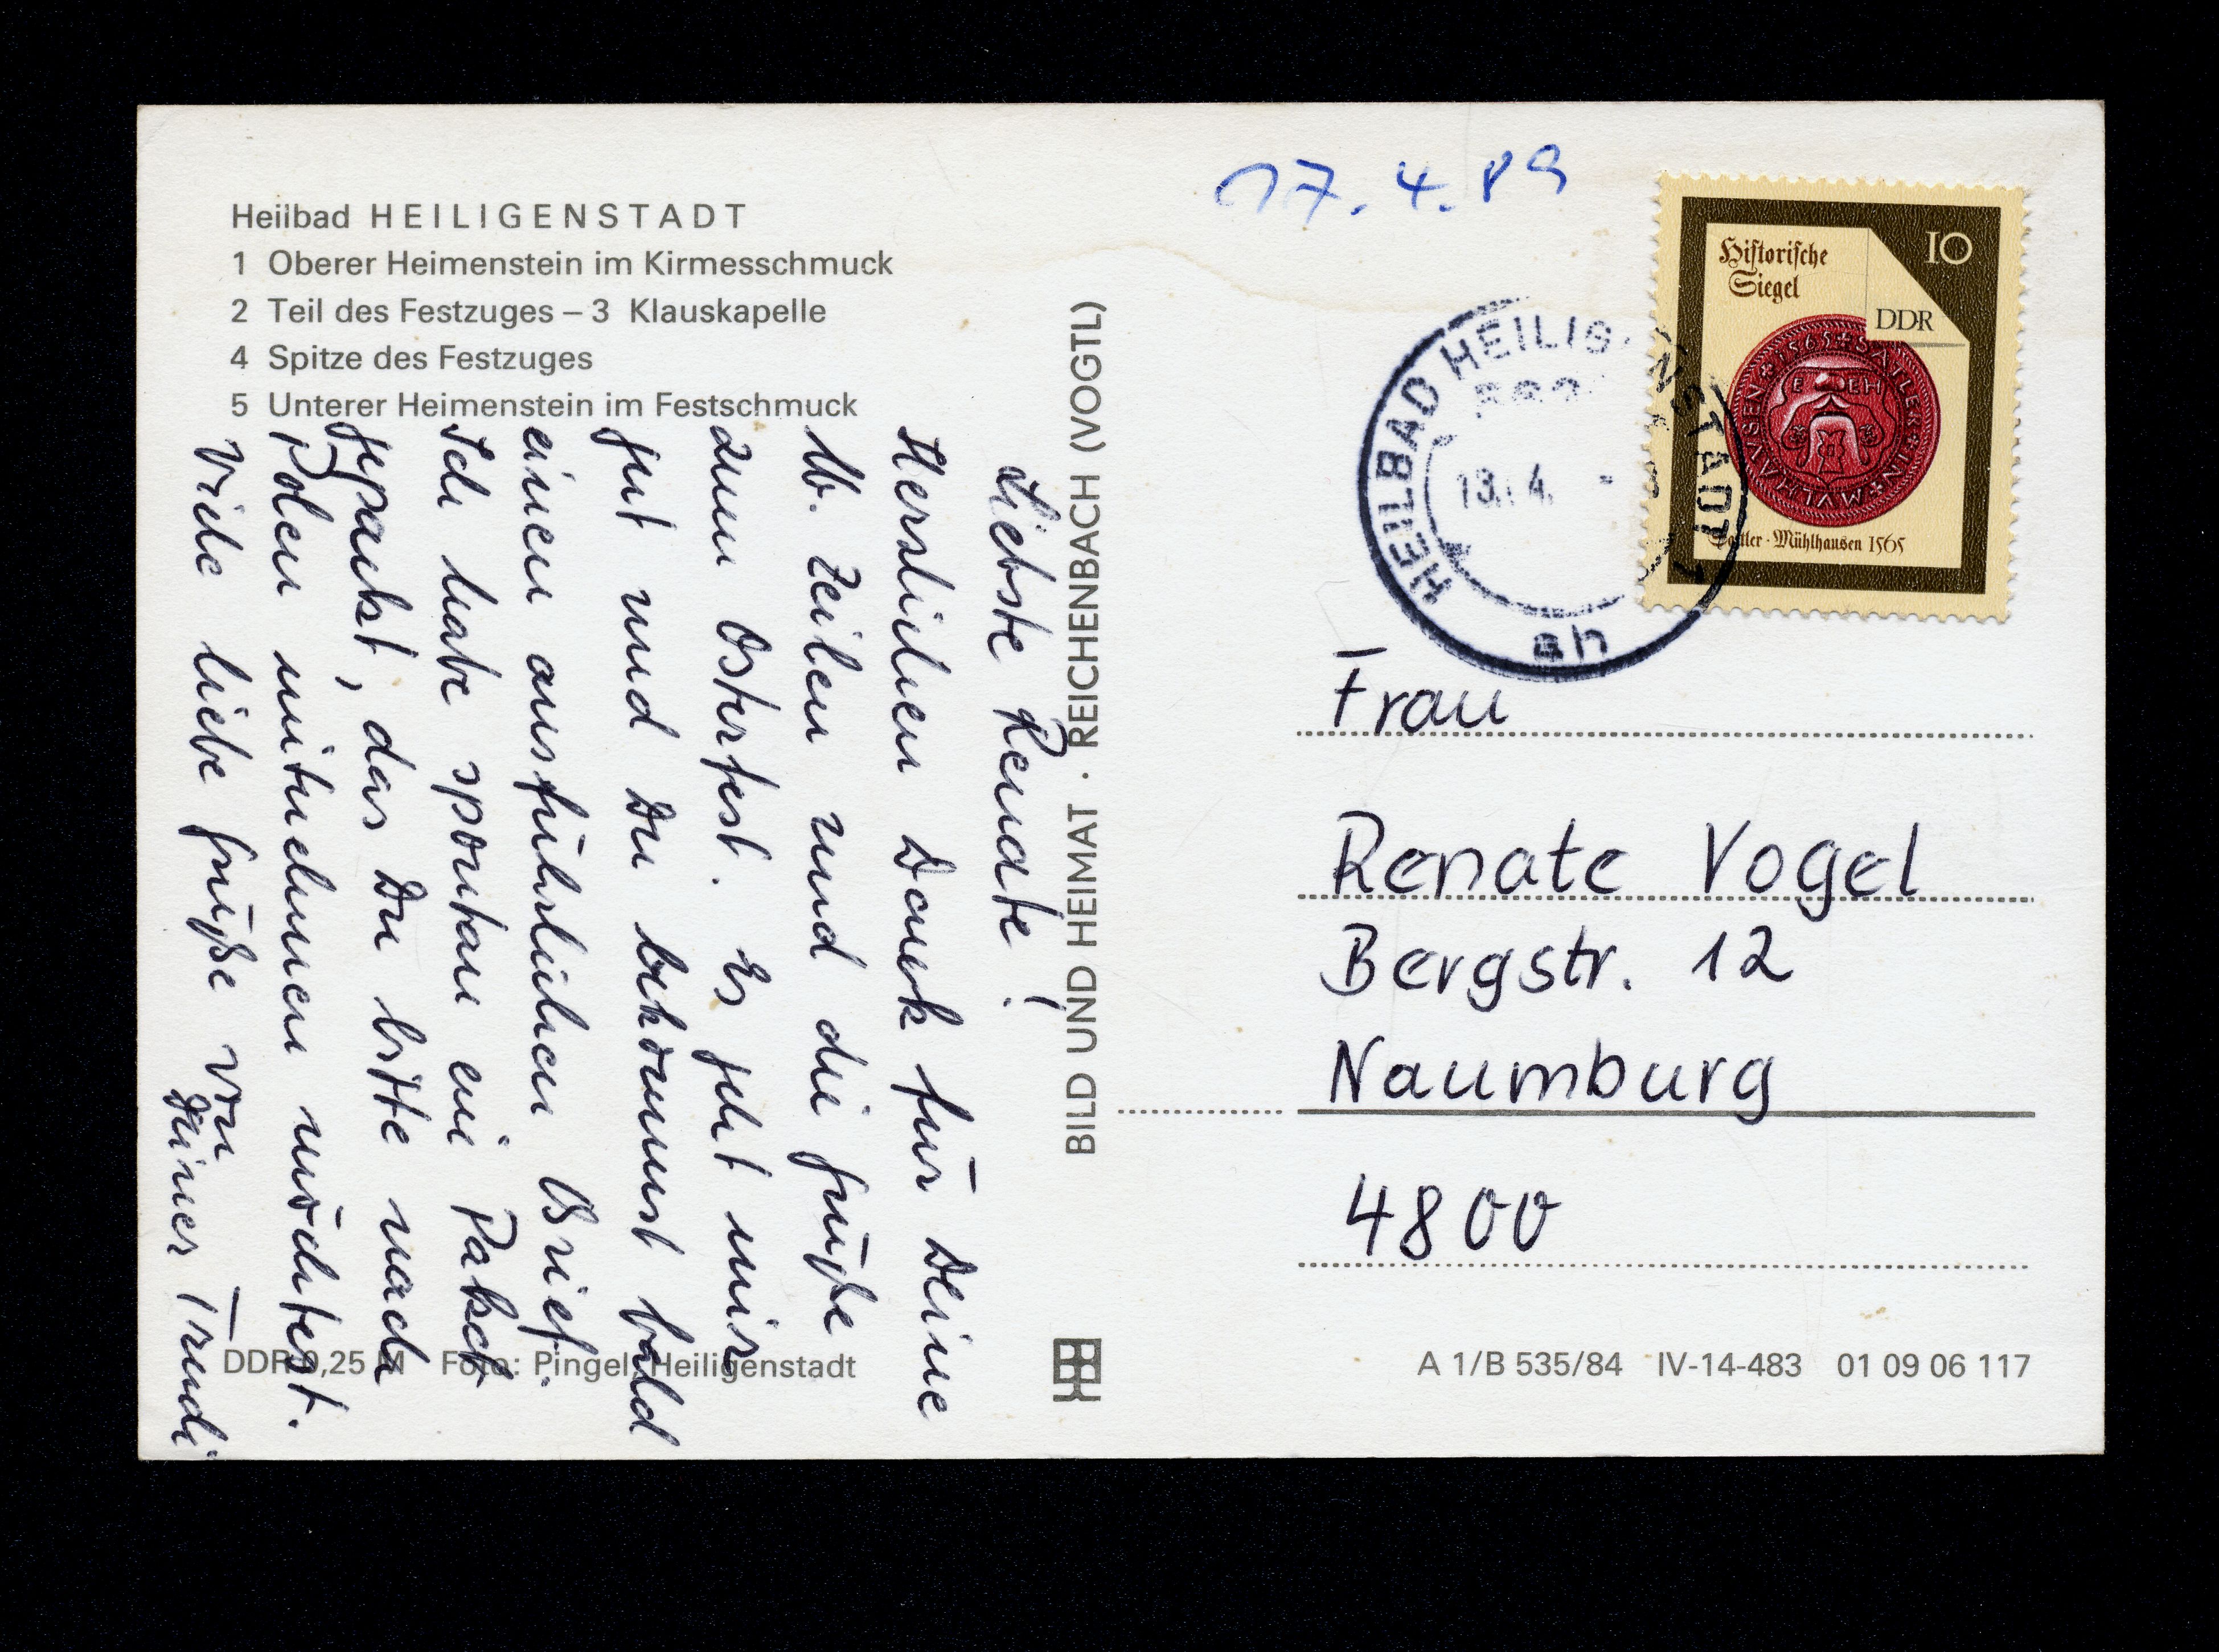 Heilbad HEILIGENSTADT
1 Oberer Heimenstein im Kirmesschmuck
2 Teil des Festzuges – 3 Klauskapelle
4 Spitze des Festzuges
5 Unterer Heimenstein im Festschmuck
Liebste Renate!
Herzlichen Dank für Deine
lb. Zeilen und die Grüße
zum Osterfest. Es geht mir
gut und Du bekommst bald
einen ausführlichen Brief.
Ich habe spontan ein Paket
gepackt, das Du bitte nach
Polen mitnehmen möchtest.
Viele liebe Grüße von
Deiner Trudi
DDR 0,25 M Foto: Pingel, Heiligenstadt
BILD UND HEIMAT · REICHENBACH (VOGTL)
17.4.89
Historische
Siegel
10
DDR
1565 SATLER IN MVLHAVSEN
Sattler · Mühlhausen 1565
HEILBAD HEILIGENSTADT 1
13. 4.
ah
Frau
Renate Vogel
Bergstr. 12
Naumburg
4800
A 1/B 535/84 IV-14-483 01 09 06 117